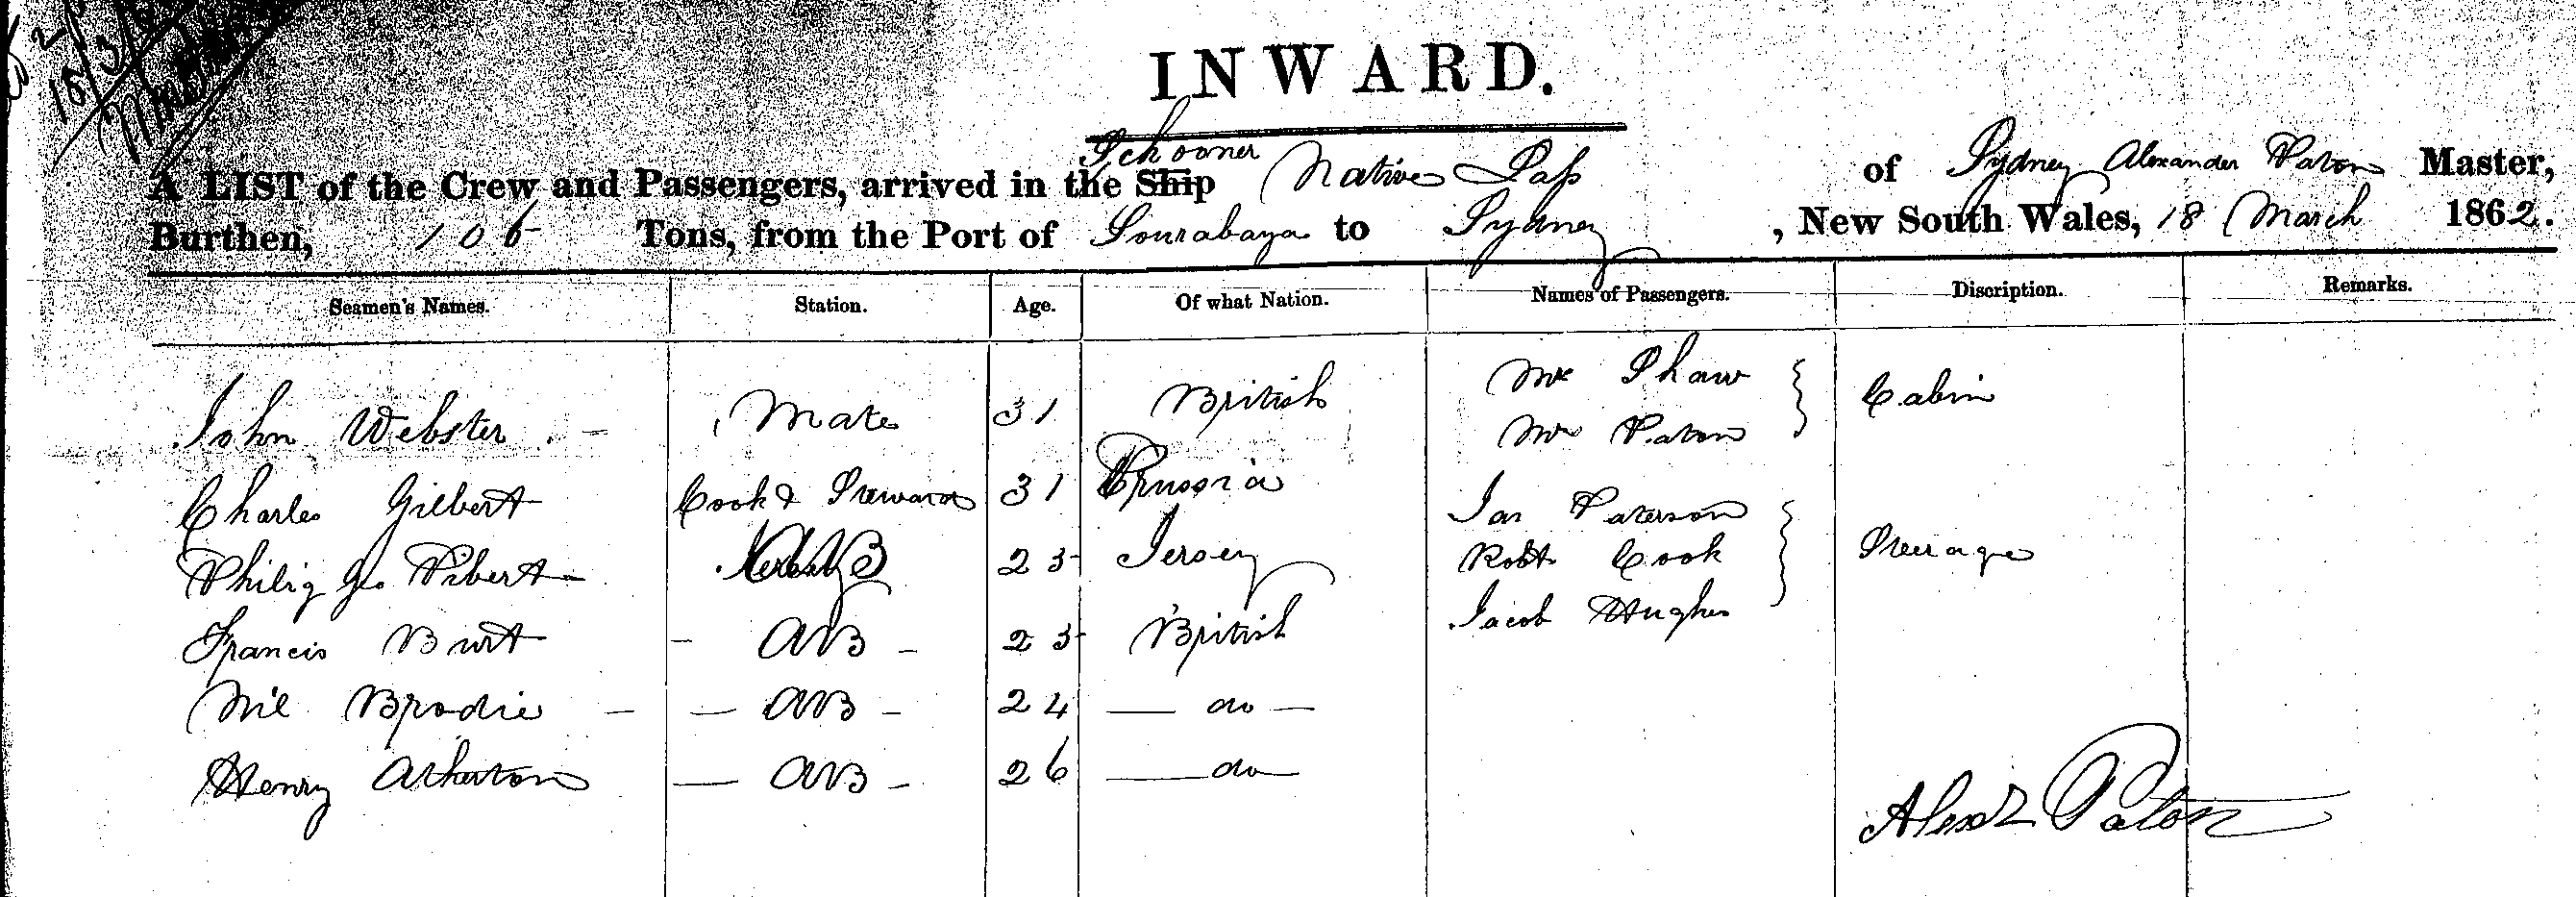 18/3/
INWARD.
A LIST of the Crew and Passengers, arrived in the Ship Schooner Native Lass of Sydney Alexander Paton Master,
Burthen, 106 Tons, from the Port of Sourabaya to Sydney, New South Wales, 18 March 1862.
Seamen's Names. Station. Age. Of what Nation. Names of Passengers. Discription. Remarks.
John Webster Mate 31 British Mr Shaw Cabin
Mrs Paton
Charles Gilbert Cook & Steward 31 Prussia Jas Paterson
Philip Geo Vibert AB 23 Jersey Robt Cook Steerage
Francis Burt AB 23 British Jacob Hughes
Brodie AB 24 do
Henry Atherton AB 26 do
Alexr Paton